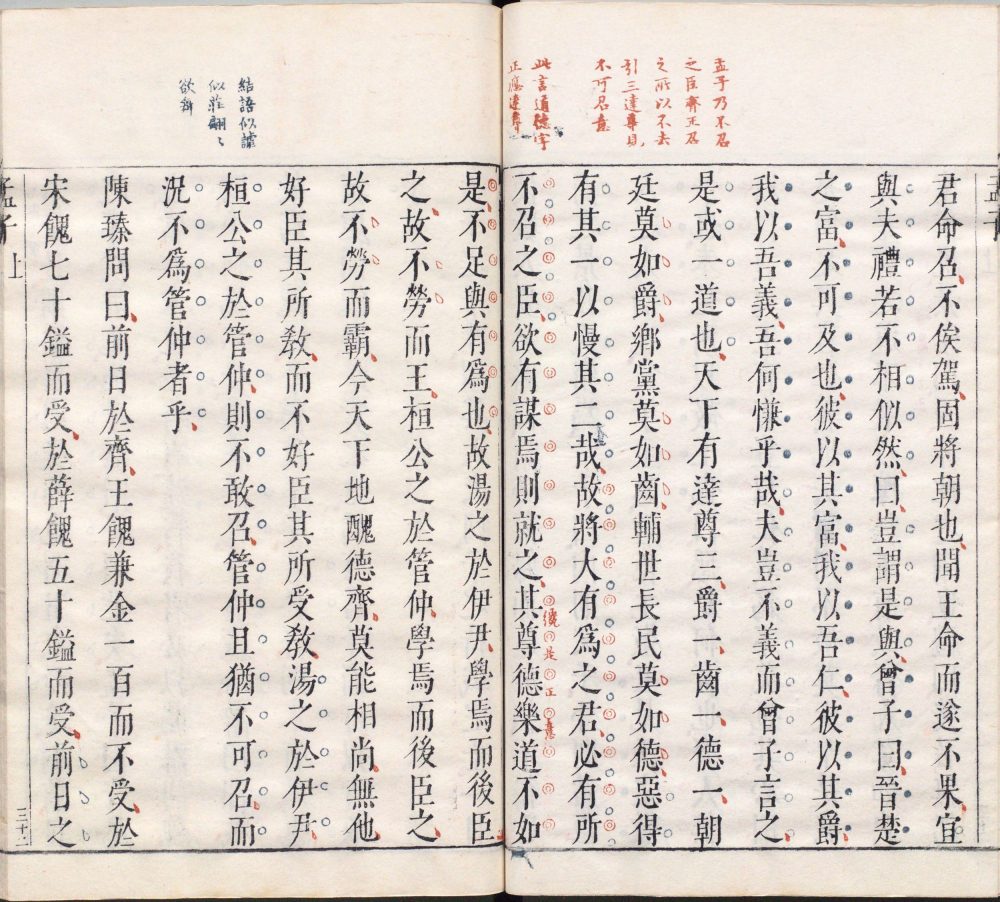 孟子乃不召
之臣齊王召
之所以不去
引三達尊見
不可召意
此言道德字
正應達尊
孟子
君命召不俟駕固將朝也聞王命而遂不果宜
與夫禮若不相似然曰豈謂是與曾子曰晉楚
之富不可及也彼以其富我以吾仁彼以其爵
我以吾義吾何慊乎哉夫豈不義而曾子言之
是或一道也天下有達尊三爵一齒一德一朝
廷莫如爵鄉黨莫如齒輔世長民莫如德惡得
有其一以慢其二哉故將大有爲之君必有所
不召之臣欲有謀焉則就之其尊德樂道不如
是正意
結語似謔
似莊翩〻
欲舞
是不足與有爲也故湯之於伊尹學焉而後臣
之故不勞而王桓公之於管仲學焉而後臣之
故不勞而霸今天下地醜德齊莫能相尚無他
好臣其所敎而不好臣其所受敎湯之於伊尹
桓公之於管仲則不敢召管仲且猶不可召而
況不爲管仲者乎
陳臻問曰前日於齊王餽兼金一百而不受於
宋餽七十鎰而受於薛餽五十鎰而受前日之
孟子上
三十二